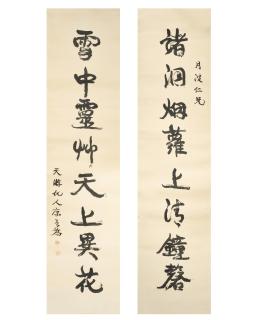 諸洞烟蘿上清鐘磬
月波仁兄
雪中靈艸天上異花
天游化人康有為